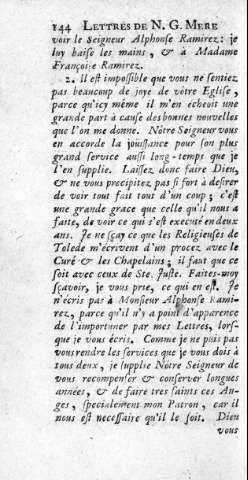 144 LETTRES DE N. G. MERE
voir le Seigneur Alphonse Ramirez: je
luy baise les mains, & à Madame
Françoise Ramirez.
2. Il est impossible que vous ne sentiez
pas beaucoup de joye de vôtre Eglise,
parce qu'icy même il m'en écheoit une
grande part à cause des bonnes nouvelles
que l'on me donne. Nôtre Seigneur vous
en accorde la joüissance pour son plus
grand service aussi long-temps que je
l'en supplie. Laissez donc faire Dieu,
& ne vous precipitez pas si fort à desirer
de voir tout fait tout d'un coup; c'est
une grande grace que celle qu'il nous a
faite, de voir ce qui s'est executé en deux
ans. Je ne sçay ce que les Religieuses de
Tolede m'écrivent d'un procez avec le
Curé & les Chapelains; il faut que ce
soit avec ceux de Ste. Juste. Faites-moy
sçavoir, je vous prie, ce qui en est. Je
n'écris pas à Monsieur Alphonse Rami-
rez, parce qu'il n'y a point d'apparence
de l'importuner par mes Lettres, lors-
que je vous écris. Comme je ne puis pas
vous rendre les services que je vous dois à
tous deux, je supplie Nôtre Seigneur de
vous recompenser & conserver longues
années, & de faire tres saints ces An-
ges, specialement mon Patron, car il
nous est necessaire qu'il le soit. Dieu
vous